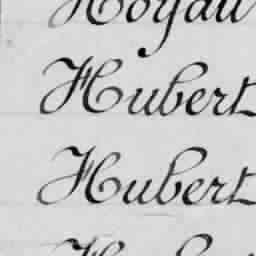 Hoyau
Hubert
Hubert